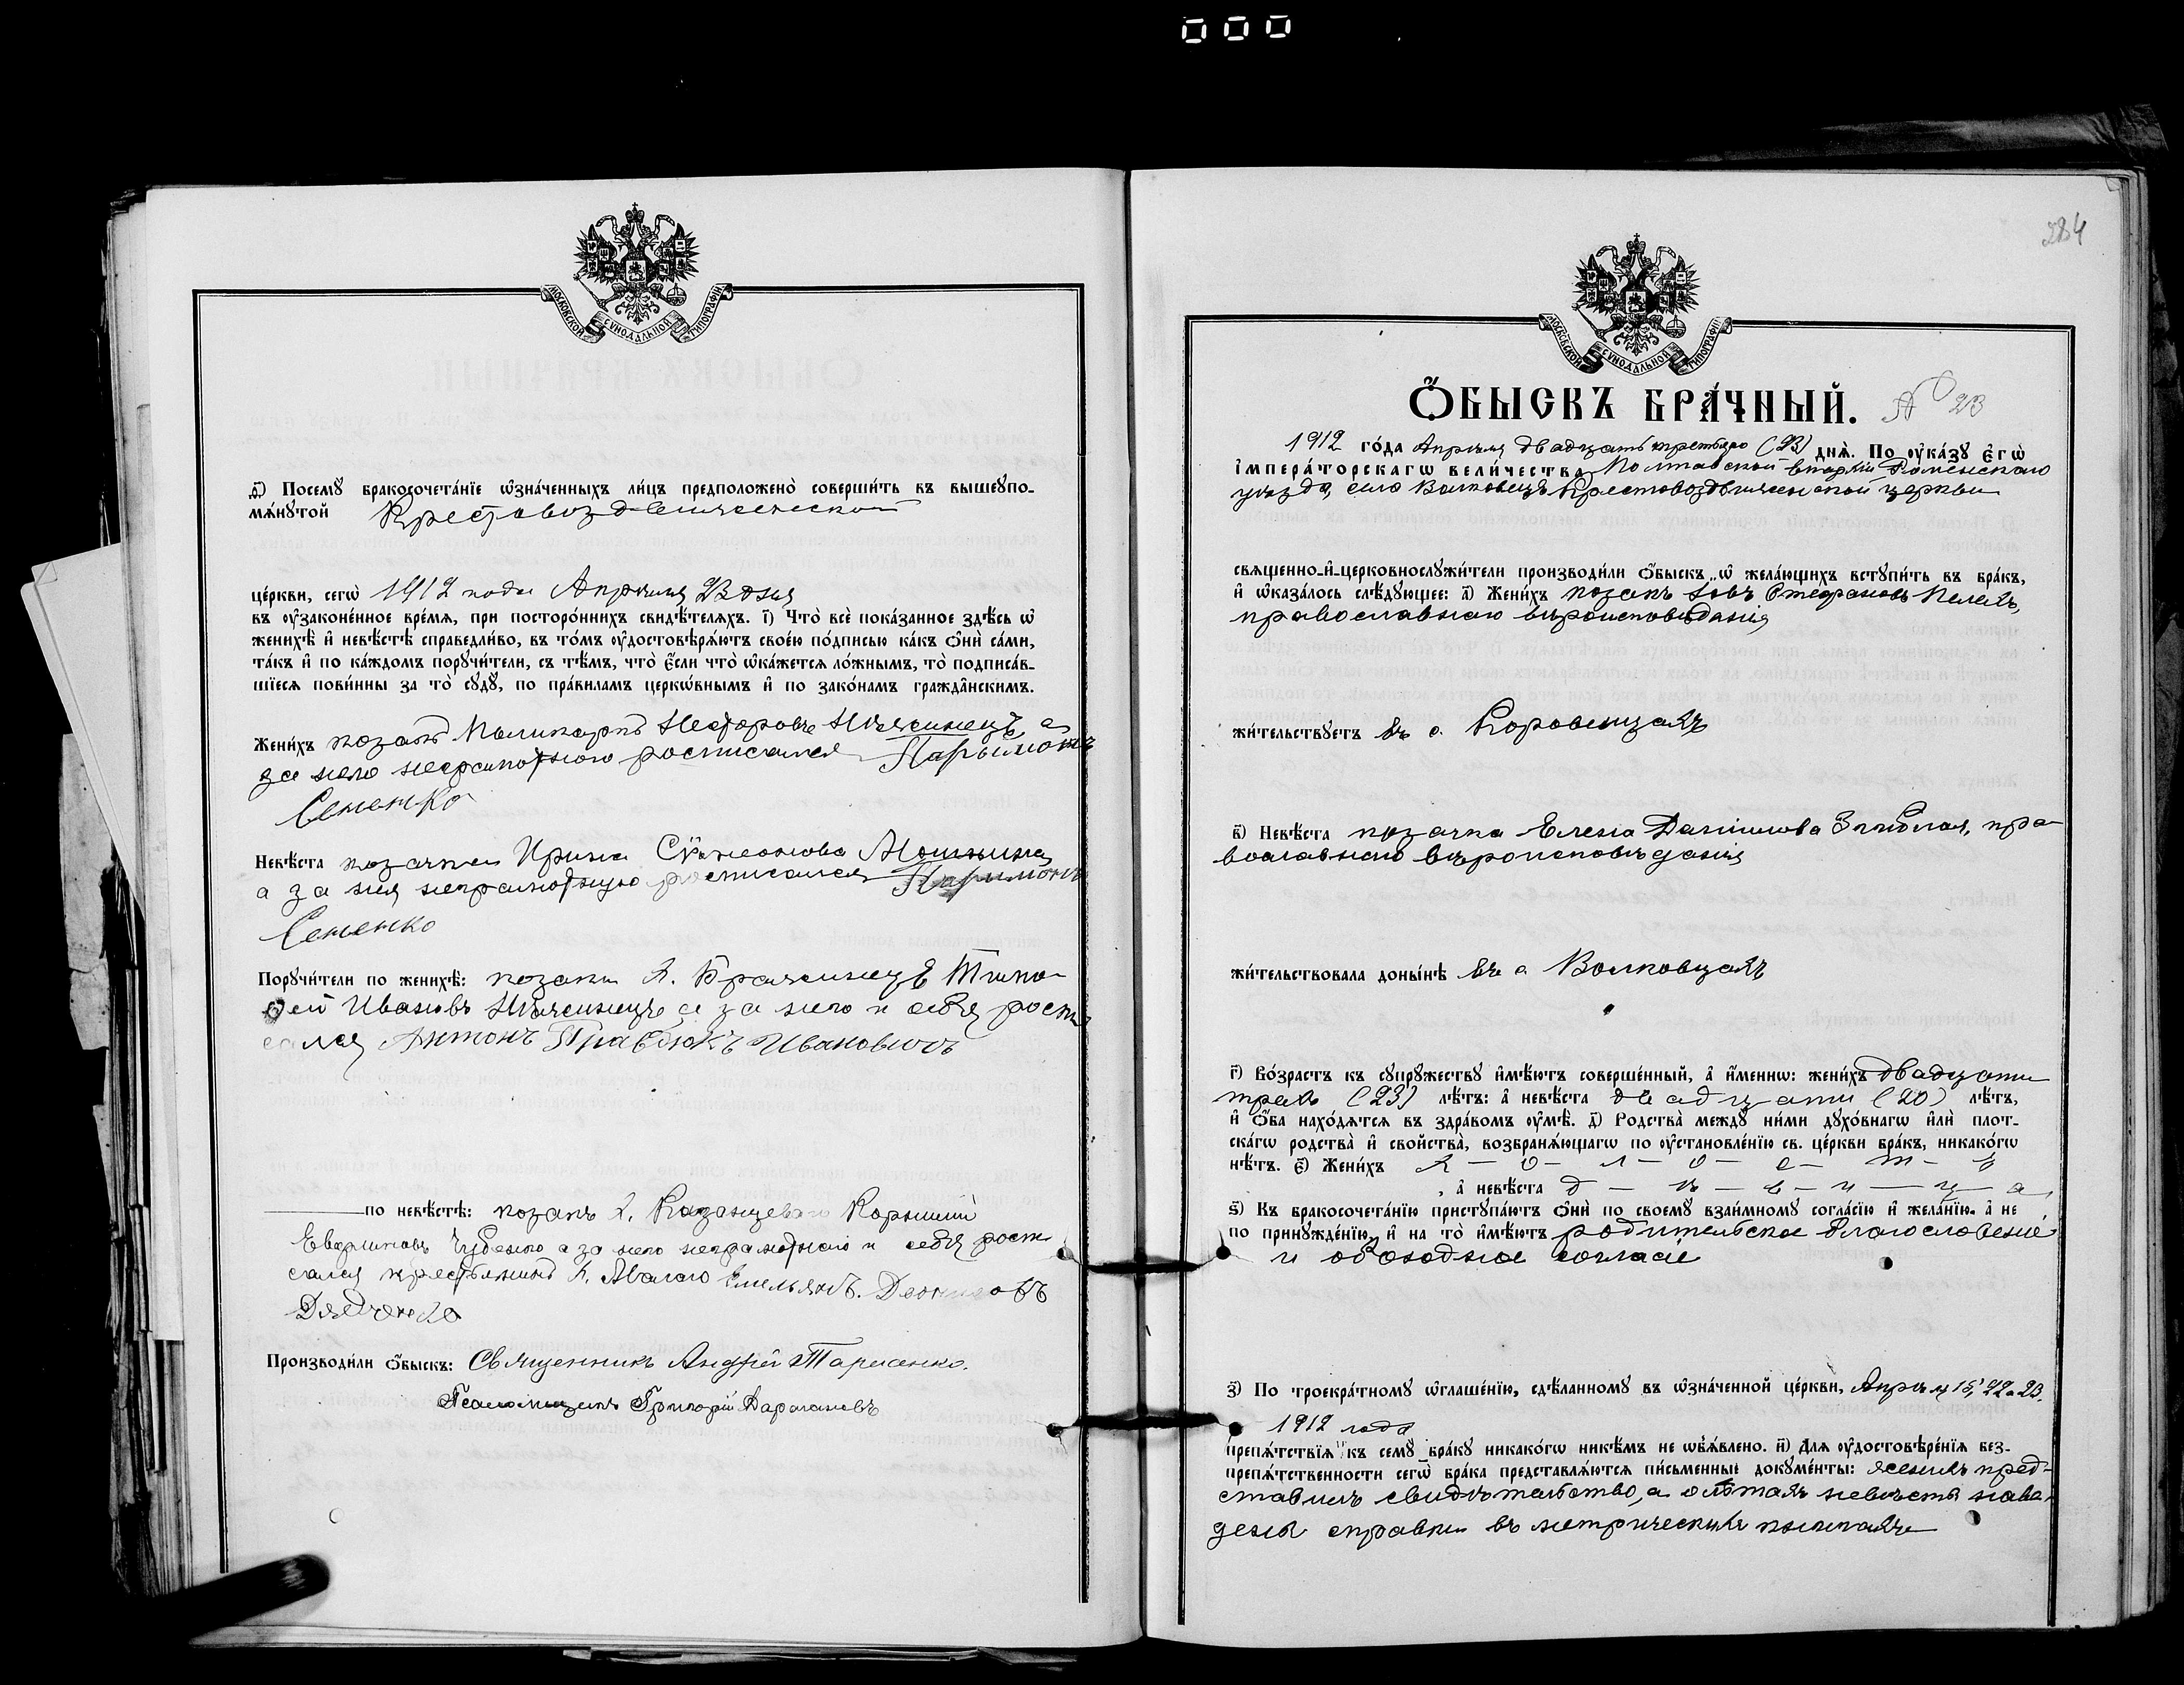 МОСКОВСКОЙ СѴНОДАЛЬНОЙ ТИПОГРАФІИ
д҃) Посемꙋ бракосочета́нїе ѡзна́ченныхъ ли́цъ предположено̀ соверши́ть въ вышеꙋпо-
мѧ́нꙋтой Крестовоздвиженской
це́ркви, сегѡ̀ 1912 года Апрѣля 23 дня
въ ᲂу҆законе́нное вре́мѧ, при посторо́ннихъ свидѣ́телѧхъ. і҃) Что̀ всѐ пока́занное здѣ́сь ѡ҆
женихѣ̀ и҆ невѣ́стѣ справедли́во, въ то́мъ ᲂу҆достовѣрѧ́ютъ свое́ю по́дписью ка́къ ѻ҆нѝ са́ми,
та́къ и҆ по ка́ждомъ порꙋчи́тели, съ тѣ́мъ, что̀ є҆́сли что̀ ѡ҆ка́жетсѧ ло́жнымъ, то̀ подписа́в-
шїесѧ пови́нны за то̀ сꙋдꙋ̀, по пра́виламъ церкѡ́внымъ и҆ по зако́намъ гражда́нскимъ.
Жени́хъ козакъ Поликарпъ Несторовъ а
за него неграмотного росписался Парымонъ
Семенко
Невѣ́ста козачка Ирина Сѵмеонова
а за нея неграмотную росписался Паримонъ
Семенко
Порꙋчи́тели по женихѣ̀: козаки х. Бражинецъ Тимо-
фей Ивановъ а за него и себя роспи
сался Антонъ Иванович
по невѣ́стѣ: козакъ х. Казанцева Корнилій
а за него неграмотнаго и себя роспи
сался крестьянинъ х. Емельянъ
Дядченко
Производи́ли ѻ҆́быскъ: Священникъ Андрей Тарасенко.
Псаломщикъ Григорій Барановъ
284
МОСКОВСКОЙ СѴНОДАЛЬНОЙ ТИПОГРАФІИ
Ѻ҆БЫСКЪ БРА́ЧНЫЙ. № 23
1912 го́да Апрѣля двадцать третьяго (23) днѧ̀. По ᲂу҆ка́зꙋ є҆гѡ̀
і҆мпера́торскагѡ вели́чества Полтавской епархіи Роменскаго
уѣзда, села Волковецъ Крестовоздвиженской церкви
свѧщенно-и҆-церковнослꙋжи́тели производи́ли ѻ҆́быскъ ѡ҆ жела́ющихъ встꙋпи́ть въ бра́къ,
и҆ ѡ҆каза́лось слѣ́дꙋющее: а҃) Жени́хъ козакъ Іовъ Стефановъ
православнаго вѣроисповѣданія
жи́тельствꙋетъ въ с. Коровинцахъ
в҃) Невѣ́ста козачка Елена Даніилова пра-
вославнаго вѣроисповѣданія
жи́тельствовала доны́нѣ въ с. Волковцахъ
г҃) Во́зрастъ къ сꙋпрꙋжествꙋ и҆мѣ́ютъ соверше́нный, а҆ и҆́меннѡ: жени́хъ двадцати
трехъ (23) лѣ́тъ: а҆ невѣ́ста двадцати (20) лѣ́тъ,
и҆ ѻ҆́ба нахо́дѧтсѧ въ здра́вомъ ᲂу҆мѣ̀. д҃) Родства̀ междꙋ̀ ни́ми дꙋхо́внагѡ и҆лѝ плот-
ска́гѡ родства̀ и҆ свойства̀, возбранѧ́ющагѡ по ᲂу҆становле́нїю св. це́ркви бра́къ, никако́гѡ
нѣ́тъ. є҃) Жени́хъ х – о – л – о – с – т – ъ
, а҆ невѣ́ста д – ѣ – в – и – ц – а,
ѕ҃) Къ бракосочета́нїю пристꙋпа́ютъ ѻ҆нѝ по своемꙋ̀ взаи́мномꙋ согла́сїю и҆ жела́нїю, а҆ не
по принꙋжде́нїю, и҆ на то̀ и҆мѣ́ютъ родительское благословеніе
и обоюдное согласіе
з҃) По троекра́тномꙋ ѡ҆глаше́нїю, сдѣ́ланномꙋ въ ѡ҆зна́ченной це́ркви, Апрѣля 15, 22 и 23.
1912 года
препѧ́тствїѧ къ семꙋ̀ бра́кꙋ никако́гѡ никѣ́мъ не ѡ҆б̾ѧ́влено. и҃) Длѧ ᲂу҆достовѣре́нїѧ без-
препѧ́тственности сегѡ̀ бра́ка представлѧ́ютсѧ пи́сьменные докꙋме́нты: женихъ пред-
ставилъ свидѣтельство, а о лѣтахъ невѣсты наве-
дены справки въ метрическихъ книгахъ